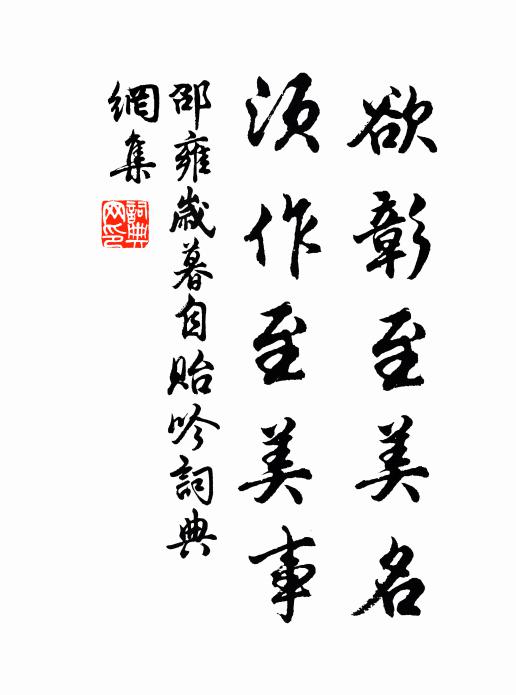 欲彰至美名
須作至美事
邵雍歲暮自貽吟詞典
網集
詞典
网印